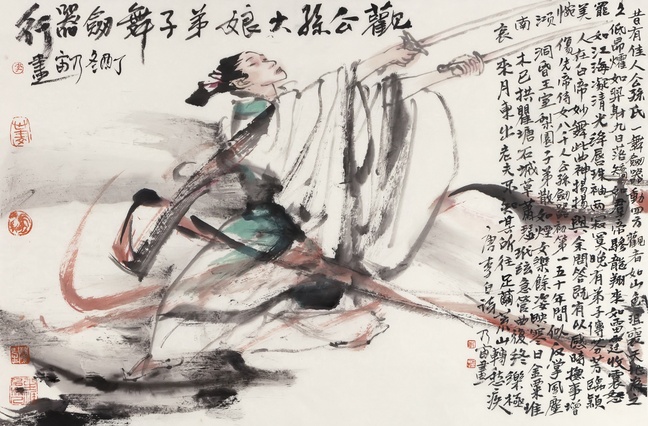 觀公孫大娘弟子舞劍器行
乃宙畫
昔有佳人公孫氏一舞劍器動四方觀者如山色沮喪天地為之
久低昂㸌如羿射九日落矯如群帝驂龍翔來如雷霆收震怒
罷如江海凝清光絳唇珠袖兩寂寞晚有弟子傳芬芳臨潁
美人在白帝妙舞此曲神揚揚與余問答既有以感時撫事增
惋傷先帝侍女八千人公孫劍器初第一五十年間似反掌風塵
澒洞昏王室梨園子弟散如煙女樂餘姿映寒日金粟堆
南木已拱瞿塘石城草蕭瑟玳絃急管曲復終樂極
哀來月東出老夫不知其所往足繭荒山轉愁疾
唐李白詩乃宙畫